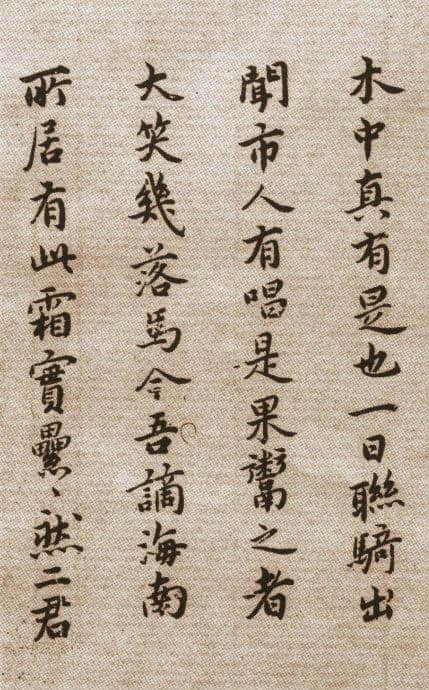 木中真有是也一日聯騎出
聞市人有唱是果鬻之者
大笑幾落馬今吾謫海南
所居有此霜實纍〻然二君